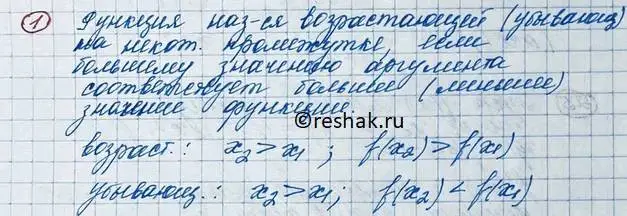 1 Функция наз-ся возрастающей (убывающ)
на некот. промежутке, если
большему значению аргумента
соответствует большее (меньшее)
значение функции.
©reshak.ru
возраст.: x₂ > x₁ ; f(x₂) > f(x₁)
убывающ.: x₂ > x₁; f(x₂) < f(x₁)